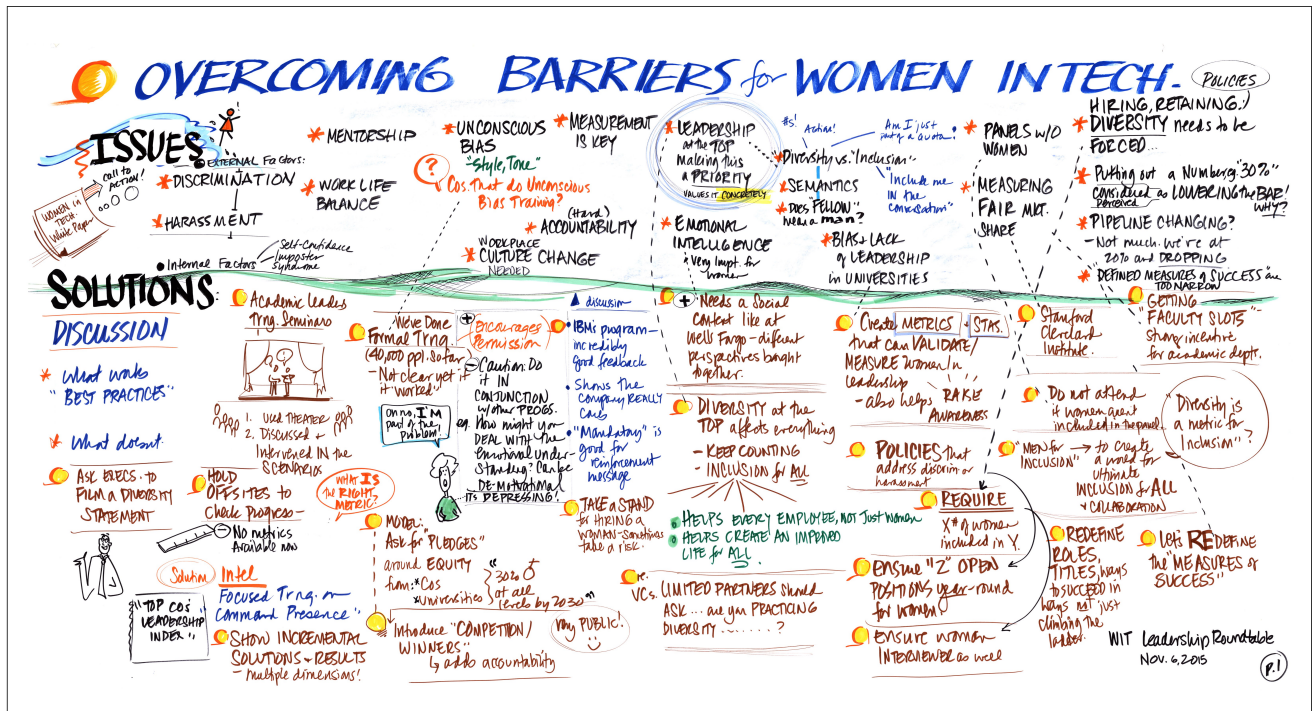 OVERCOMING BARRIERS for WOMEN IN TECH.
POLICIES
ISSUES
CALL TO
ACTION!
WOMEN in
TECH
White Paper
EXTERNAL Factors:
* DISCRIMINATION
* HARASSMENT
Internal Factors
Self-Confidence
Imposter
Syndrome
* MENTORSHIP
* WORK LIFE
BALANCE
* UNCONSCIOUS
BIAS
"Style, Tone"
?
Cos. That do Unconscious
Bias Training?
* MEASUREMENT
IS KEY
(Hard)
* ACCOUNTABILITY
WORKPLACE
* CULTURE CHANGE
NEEDED
* LEADERSHIP
at the TOP
making this
a PRIORITY
VALUES IT CONCRETELY
* EMOTIONAL
INTELLIGENCE
* Very Impt. for
women
#s!
Action!
Am I just
part of a quota?
* Diversity vs. "Inclusion"
* SEMANTICS
* Does "FELLOW"
need a man?
"Include me
IN the
conversation"
* BIAS + LACK
of LEADERSHIP
in UNIVERSITIES
* PANELS W/O
WOMEN
* MEASURING
FAIR MKT.
SHARE
* HIRING, RETAINING :)
DIVERSITY needs to be
FORCED...
* Putting out a Number e.g. "30%"
considered as LOWERING the BAR!
perceived
WHY?
* PIPELINE CHANGING?
- Not much. We're at
20% and DROPPING
* DEFINED MEASURES of SUCCESS are
TOO NARROW
SOLUTIONS:
DISCUSSION
* What works
"BEST PRACTICES"
* What doesn't
ASK EXECS. to
FILM a DIVERSITY
STATEMENT
Academic Leaders
Trng. Seminars
1. USED THEATER
2. Discussed +
Intervened IN the
SCENARIOS
HOLD
OFFSITES to
Check Progress-
No metrics
Available now
Solution
Intel
Focused Trng. on
"Command Presence"
"TOP COS'
LEADERSHIP
INDEX"
SHOW INCREMENTAL
SOLUTIONS + RESULTS
- multiple dimensions!
We've Done
Formal Trng.
(40,000 ppl. So far
- Not clear yet if
it "worked"
oh no, I'M
part of the
problem!
WHAT IS
the RIGHT
METRIC?
+
Encourages
Permission
- Caution: Do
it IN
CONJUNCTION
w/other PROGS.
e.g. How might you
DEAL WITH the
Emotional Under-
Standing? Can be
DE-MOTIVATIONAL
ITS DEPRESSING!
discussion
IBM's program-
incredibly
good feedback
Shows the
company REALLY
Cares
"Mandatory" is
good for
reinforcement
message
TAKE a STAND
for HIRING a
WOMAN - Sometimes
take a risk.
MODEL:
Ask for "PLEDGES"
around EQUITY
from: * Cos
* Universities
"30%
at all
levels by 2030"
Very PUBLIC!
Introduce "COMPETITION/
WINNERS"
adds accountability
+ Needs a Social
context like at
Wells Fargo - different
perspectives bought
together.
DIVERSITY at the
TOP affects everything
- KEEP COUNTING
- INCLUSION for ALL
HELPS EVERY EMPLOYEE, NOT Just Women
HELPS CREATE AN IMPROVED
LIFE for ALL
re.
VCs.
LIMITED PARTNERS Should
ASK ... are you PRACTICING
DIVERSITY ........?
Create METRICS + STAS.
that can VALIDATE/
MEASURE Women/in
leadership
- also helps RAISE
AWARENESS
POLICIES that
address discrim or
harassment
REQUIRE
X # of women
included in Y.
Ensure "Z" OPEN
POSITIONS year-round
for women
ensure woman
INTERVIEWER as well
Stanford
Clerland
Institute.
Do not attend
if women arent
included in the panel.
"MEN for INCLUSION"
to create
a world for
ultimate
INCLUSION for ALL
+ COLLABORATION
REDEFINE
ROLES,
TITLES, ways
to SUCCEED in
ways not just
climbing the
ladder.
GETTING
"FACULTY SLOTS" -
Strong incentive
for academic depts.
"Diversity is
a metric for
Inclusion"?
Let's REDEFINE
the "MEASURES of
SUCCESS"
WIT Leadership Roundtable
NOV. 6, 2015
p.1